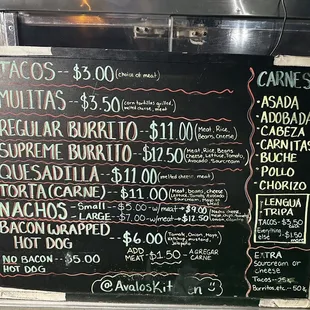 TACOS -- $3.00 (choice of meat)
MULITAS -- $3.50 (corn tortillas grilled, melted cheese, meat)
REGULAR BURRITO -- $11.00 (Meat, Rice, Beans, Cheese)
SUPREME BURRITO -- $12.50 (Meat, Rice, Beans, Cheese, Lettuce, Tomato, Avocado, Sourcream)
QUESADILLA -- $11.00 (melted cheese, meat)
TORTA (CARNE) -- $11.00 (Meat, beans, cheese
NACHOS - Small -- $5.00 - w/meat → $9.00
- LARGE - $7.00 - w/meat → $12.50
BACON WRAPPED
HOT DOG -- $6.00 (Tomato, Onion, Mayo,
NO BACON - $5.00
HOT DOG
ADD MEAT -- $1.50 - AGREGAR CARNE
CARNES
• ASADA
• ADOBADA
• CABEZA
• CARNITAS
• BUCHE
• POLLO
• CHORIZO
LENGUA
• TRIPA
TACOS - $3.50 each
Everything else - $1.50 more
EXTRA
Sourcream or
cheese
Tacos - 25¢
Burritos etc. - 50¢